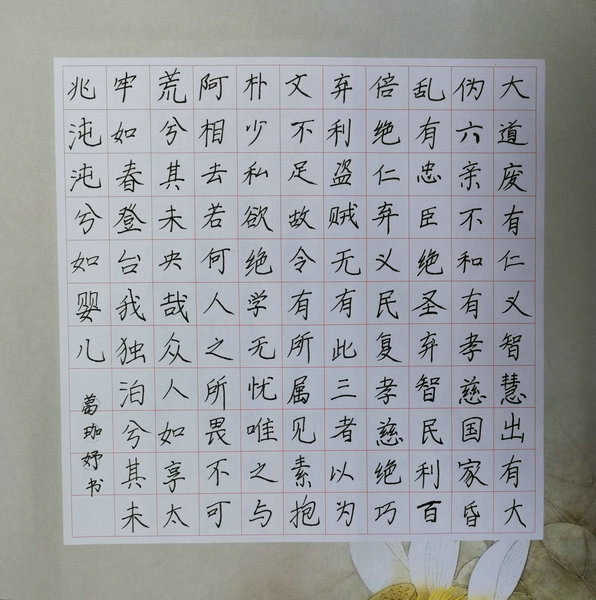 大道废有仁义智慧出有大
伪六亲不和有孝慈国家昏
乱有忠臣绝圣弃智民利百
倍绝仁弃义民复孝慈绝巧
弃利盗贼无有此三者以为
文不足故令有所属见素抱
朴少私欲绝学无忧唯之与
阿相去若何人之所畏不可
荒兮其未央哉众人如享太
牢如春登台我独泊兮其未
兆沌沌兮如婴儿
葛珈妤书